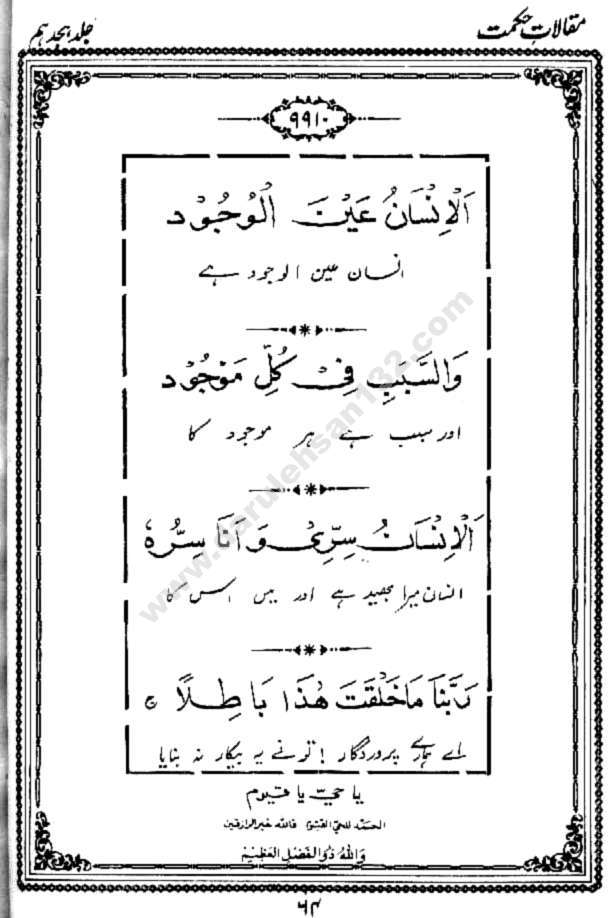 مقالاتِ حکمت
جلد ہجدہم
۹۹۱۰
اَلْاِنْسَانُ عَيْنَ الْوُجُوْد
انسان عین الوجود ہے
وَالسَّبَبِ فِيْ كُلِّ مَوْجُوْد
اور سبب ہے ہر موجود کا
اَلْاِنْسَانُ سِرِّيْ وَ اَنَا سِرُّهٗ
انسان میرا بھید ہے اور میں اس کا
رَبَّنَا مَاخَلَقْتَ هٰذَا بَاطِلًا ج
اے ہمارے پروردگار ! تو نے یہ بیکار نہ بنایا
یا حیّ یا قیوم
الحمد للحي القيوم فالله خير الرازقين
وَاللّٰهُ ذُو الْفَضْلِ الْعَظِيْمِ
۶۴
www.darulehsan132.com